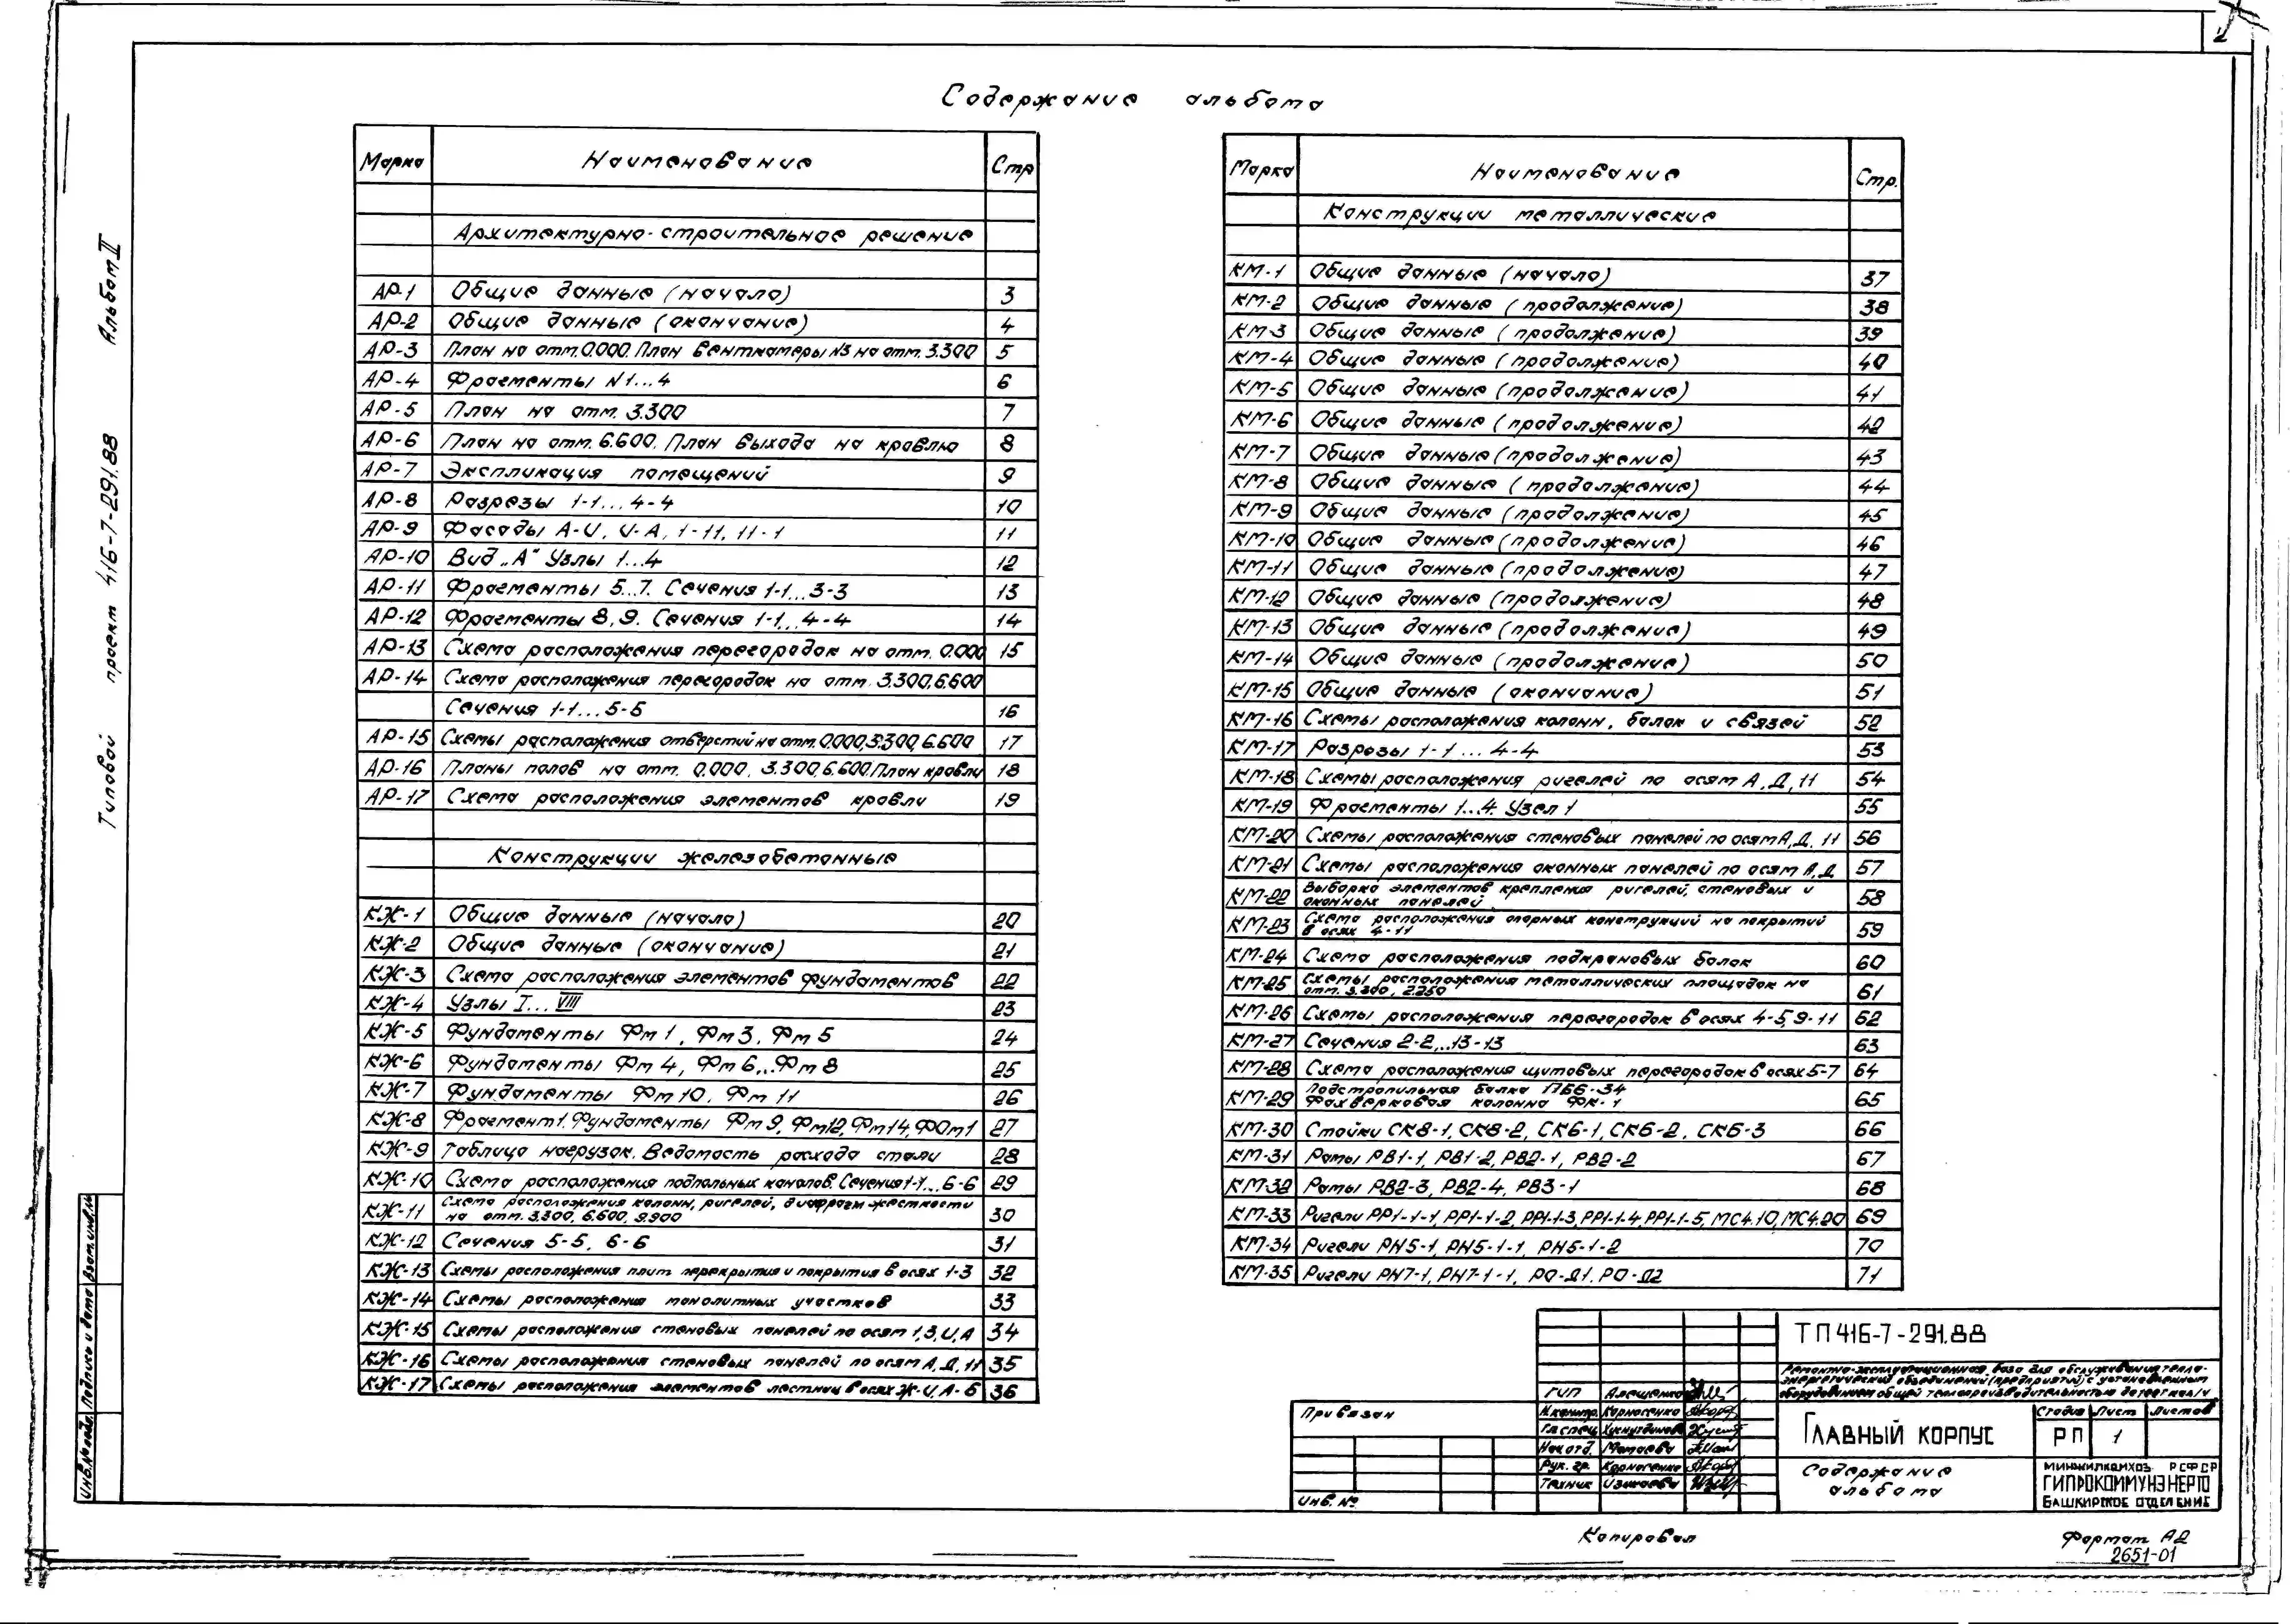 2
Содержание альбома
Марка Наименование Стр
Архитектурно-строительное решение
АР-1 Общие данные (начало) 3
АР-2 Общие данные (окончание) 4
АР-3 План на отм. 0.000. План венткамеры N3 на отм. 3.300 5
АР-4 Фрагменты N1...4 6
АР-5 План на отм. 3.300 7
АР-6 План на отм. 6.600. План выхода на кровлю 8
АР-7 Экспликация помещений 9
АР-8 Разрезы 1-1...4-4 10
АР-9 Фасады А-И, И-А, 1-11, 11-1 11
АР-10 Вид „А" Узлы 1...4 12
АР-11 Фрагменты 5...7. Сечения 1-1...3-3 13
АР-12 Фрагменты 8, 9. Сечения 1-1...4-4 14
АР-13 Схема расположения перегородок на отм. 0.000 15
АР-14 Схема расположения перегородок на отм. 3.300, 6.600
Сечения 1-1...5-5 16
АР-15 Схемы расположения отверстий на отм. 0.000, 3.300, 6.600 17
АР-16 Планы полов на отм. 0.000, 3.300, 6.600. План кровли 18
АР-17 Схема расположения элементов кровли 19
Конструкции железобетонные
КЖ-1 Общие данные (начало) 20
КЖ-2 Общие данные (окончание) 21
КЖ-3 Схема расположения элементов фундаментов 22
КЖ-4 Узлы I...VIII 23
КЖ-5 Фундаменты Фм 1, Фм 3, Фм 5 24
КЖ-6 Фундаменты Фм 4, Фм 6...Фм 8 25
КЖ-7 Фундаменты Фм 10, Фм 11 26
КЖ-8 Фрагмент 1. Фундаменты Фм 9, Фм12, Фм14, ФОм1 27
КЖ-9 Таблица нагрузок. Ведомость расхода стали 28
КЖ-10 Схема расположения подпольных каналов. Сечения 1-1...6-6 29
КЖ-11 Схема расположения колонн, ригелей, диафрагм жесткости
на отм. 3.300, 6.600, 9.900 30
КЖ-12 Сечения 5-5, 6-6 31
КЖ-13 Схемы расположения плит перекрытия и покрытия в осях 1-3 32
КЖ-14 Схемы расположения монолитных участков 33
КЖ-15 Схемы расположения стеновых панелей по осям 1, 3, И, А 34
КЖ-16 Схемы расположения стеновых панелей по осям А, Д, 11 35
КЖ-17 Схемы расположения элементов лестниц в осях Ж-И, А-Б 36
Марка Наименование Стр.
Конструкции металлические
КМ-1 Общие данные (начало) 37
КМ-2 Общие данные (продолжение) 38
КМ-3 Общие данные (продолжение) 39
КМ-4 Общие данные (продолжение) 40
КМ-5 Общие данные (продолжение) 41
КМ-6 Общие данные (продолжение) 42
КМ-7 Общие данные (продолжение) 43
КМ-8 Общие данные (продолжение) 44
КМ-9 Общие данные (продолжение) 45
КМ-10 Общие данные (продолжение) 46
КМ-11 Общие данные (продолжение) 47
КМ-12 Общие данные (продолжение) 48
КМ-13 Общие данные (продолжение) 49
КМ-14 Общие данные (продолжение) 50
КМ-15 Общие данные (окончание) 51
КМ-16 Схемы расположения колонн, балок и связей 52
КМ-17 Разрезы 1-1...4-4 53
КМ-18 Схемы расположения ригелей по осям А, Д, 11 54
КМ-19 Фрагменты 1...4. Узел 1 55
КМ-20 Схемы расположения стеновых панелей по осям А, Д, 11 56
КМ-21 Схемы расположения оконных панелей по осям А, Д 57
КМ-22 Выборка элементов крепления ригелей, стеновых и
оконных панелей 58
КМ-23 Схема расположения опорных конструкций на покрытий
в осях 4-11 59
КМ-24 Схема расположения подкрановых балок 60
КМ-25 Схемы расположения металлических площадок на
отм. 3.300, 2.250 61
КМ-26 Схемы расположения перегородок в осях 4-5, 9-11 62
КМ-27 Сечения 2-2...13-13 63
КМ-28 Схема расположения щитовых перегородок в осях 5-7 64
КМ-29 Подстропильная балка ПБ6-34
Фахверковая колонна ФК-1 65
КМ-30 Стойки СК8-1, СК8-2, СК6-1, СК6-2, СК6-3 66
КМ-31 Рамы РВ1-1, РВ1-2, РВ2-1, РВ2-2 67
КМ-32 Рамы РВ2-3, РВ2-4, РВ3-1 68
КМ-33 Ригели РР1-1-1, РР1-1-2, РР1-1-3, РР1-1-4, РР1-1-5, МС4.10, МС4.20 69
КМ-34 Ригели РН5-1, РН5-1-1, РН5-1-2 70
КМ-35 Ригели РН7-1, РН7-1-1, РО-Д1, РО-Д2 71
Типовой проект 416-7-291.88 Альбом II
Инв.№подл. Подпись и дата Взам.инв.№
Привязан
Инв. №
ГИП Алешенко
Н.контр. Корнаценко
Гл.спец.
Нач.отд. Матаева
Рук. гр. Корнаценко
Техник Изикаева
ТП 416-7-291.88
Ремонтно-эксплуатационная база для обслуживания тепло-
энергетических объединений (предприятий) с установленным
оборудованием общей теплопроизводительностью до гкал/ч
Главный корпус
Стадия Лист Листов
РП 1
Содержание
альбома
Минжилкомхоз РСФСР
ГИПРОКОММУНЭНЕРГО
Башкирское отделение
Копировал
Формат А2
2651-01